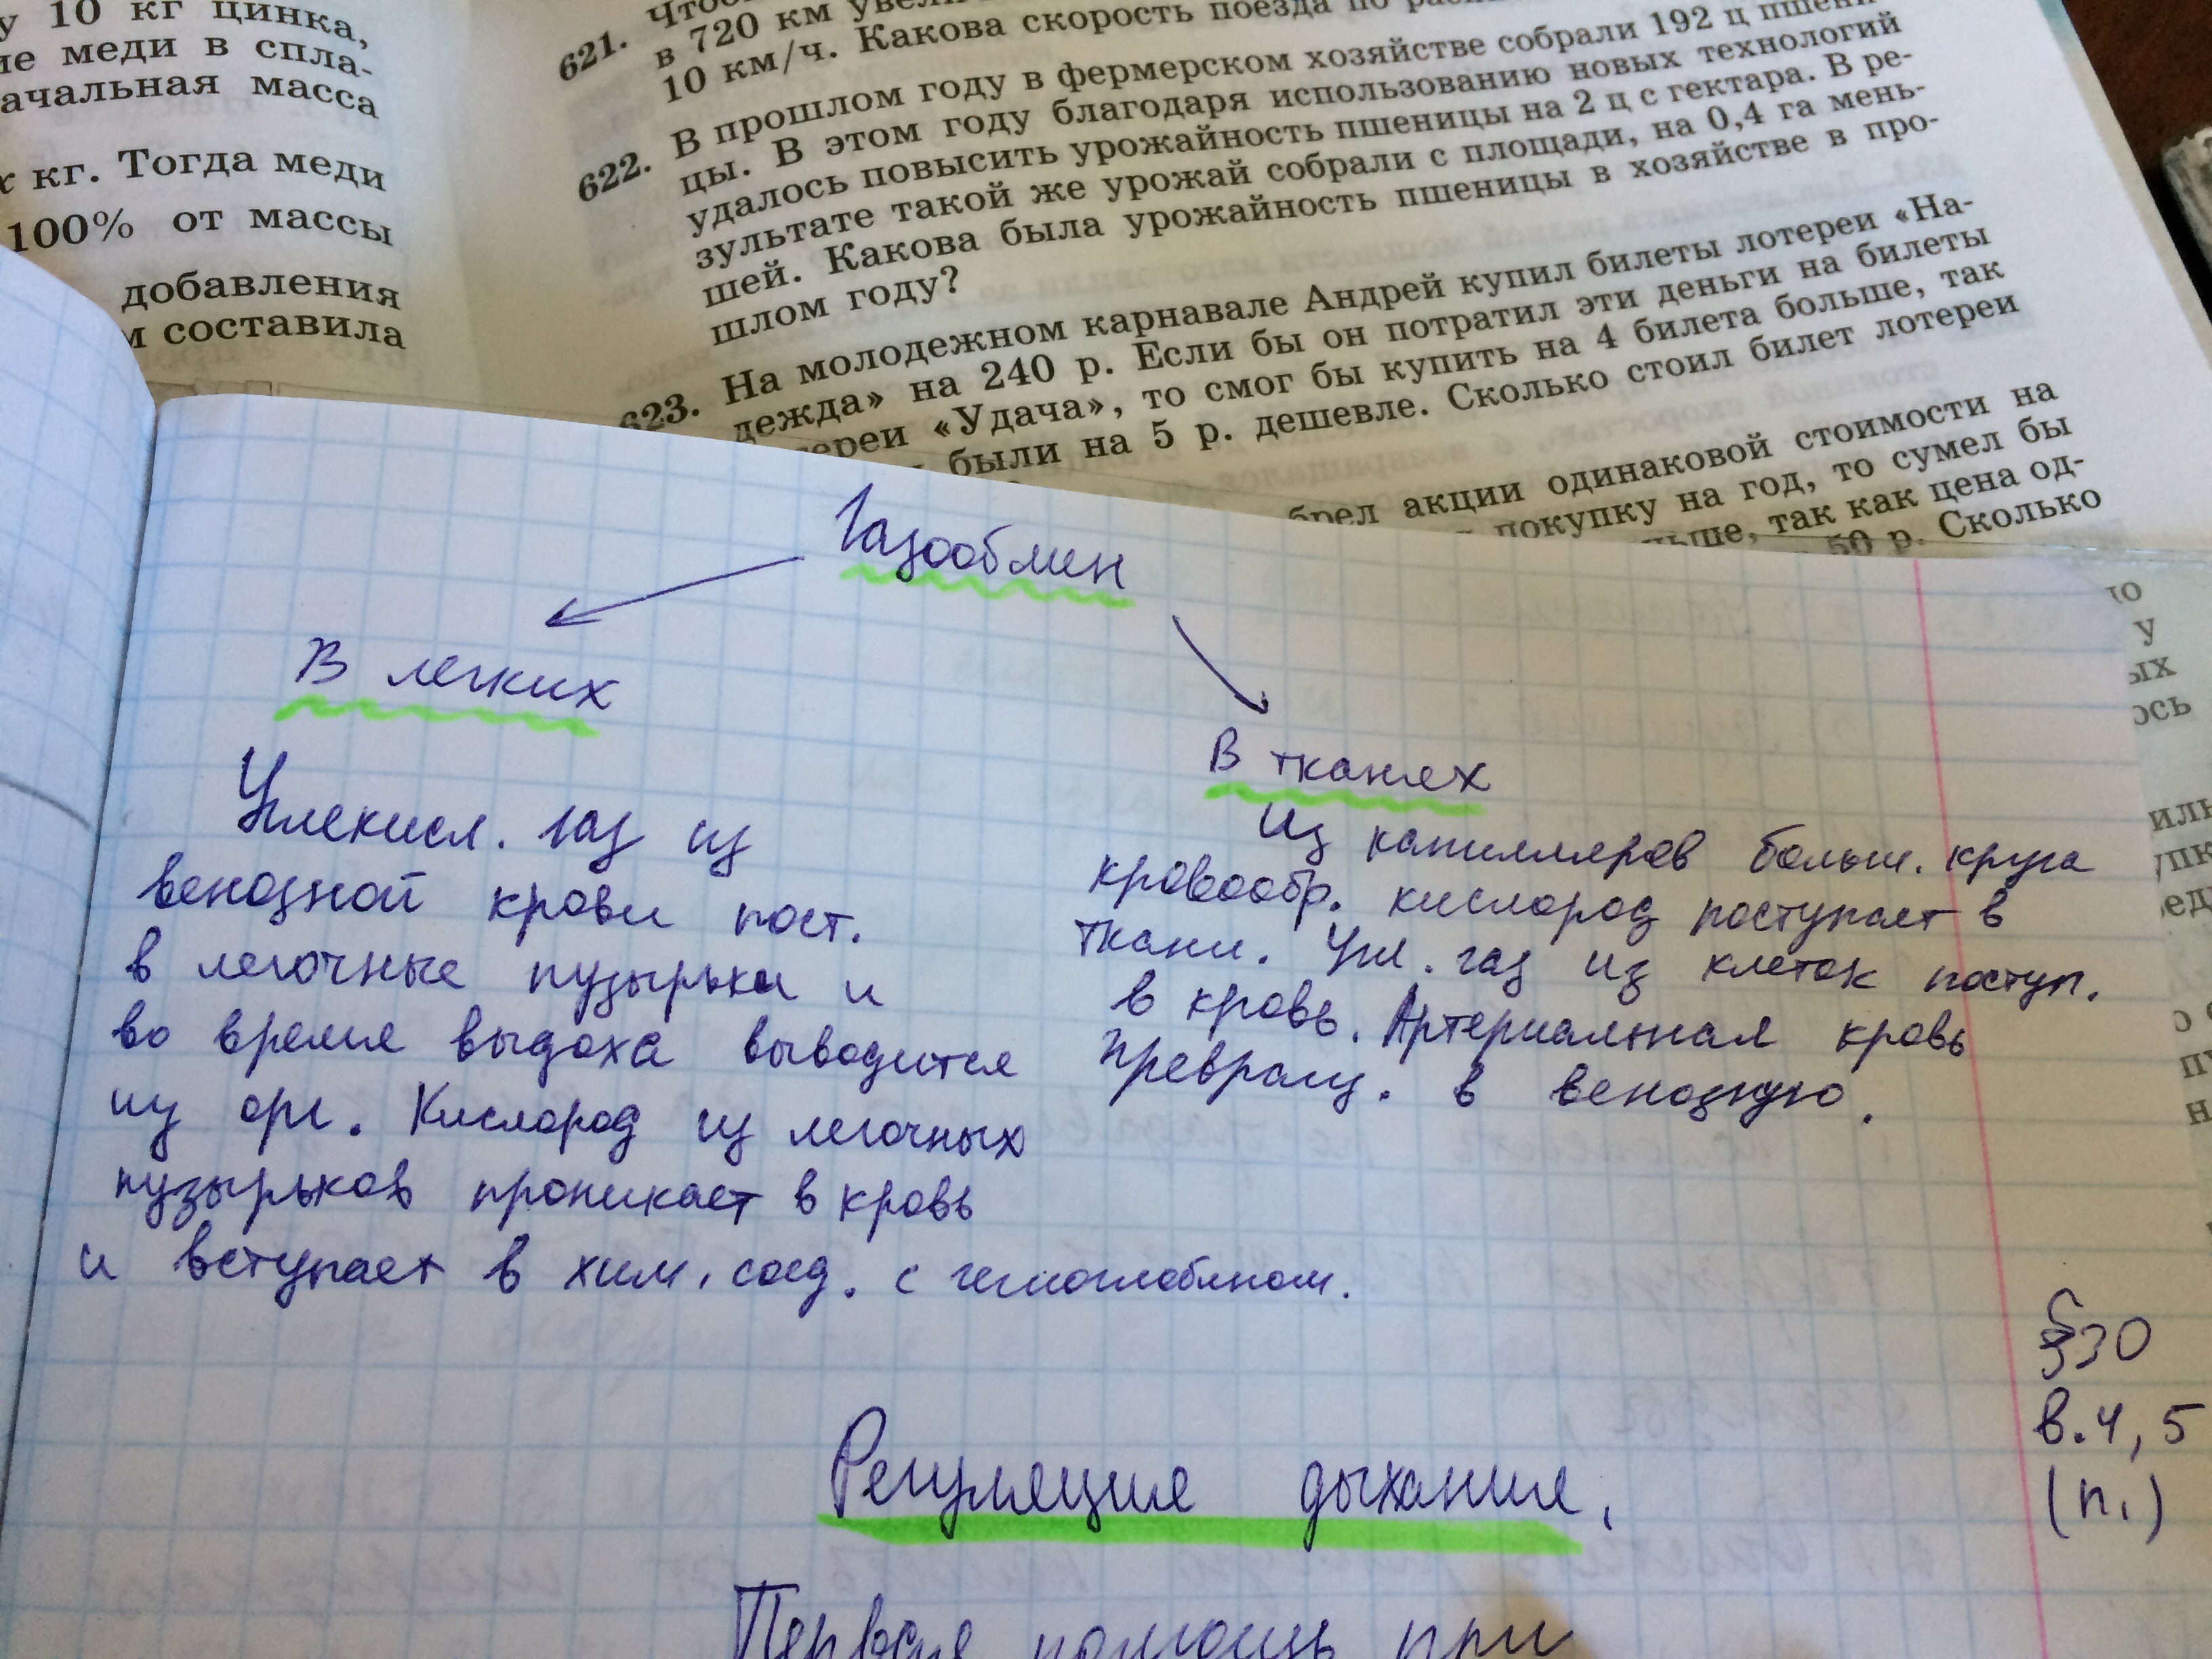 у 10 кг цинка,
ие меди в спла-
ачальная масса
х кг. Тогда меди
100% от массы
добавления
м составила
621.
в 720 км
10 км/ч. Какова скорость поезда по
622. В прошлом году в фермерском хозяйстве собрали 192 ц пшени-
цы. В этом году благодаря использованию новых технологий
удалось повысить урожайность пшеницы на 2 ц с гектара. В ре-
зультате такой же урожай собрали с площади, на 0,4 га мень-
шей. Какова была урожайность пшеницы в хозяйстве в про-
шлом году?
623. На молодежном карнавале Андрей купил билеты лотереи «На-
дежда» на 240 р. Если бы он потратил эти деньги на билеты
тереи «Удача», то смог бы купить на 4 билета больше, так
были на 5 р. дешевле. Сколько стоил билет лотереи
брел акции одинаковой стоимости на
покупку на год, то сумел бы
ньше, так как цена од-
50 р. Сколько
Газообмен
В легких
В тканях
Углекисл. газ из
венозной крови пост.
в легочные пузырьки и
во время выдоха выводится
из орг. Кислород из легочных
пузырьков проникает в кровь
и вступает в хим. соед. с гемоглобином.
Из капилляров больш. круга
кровообр. кислород поступает в
ткани. Угл. газ из клеток поступ.
в кровь. Артериальная кровь
превращ. в венозную.
§30
в. 4, 5
(п.)
Регуляция дыхания.
Первая помощь при